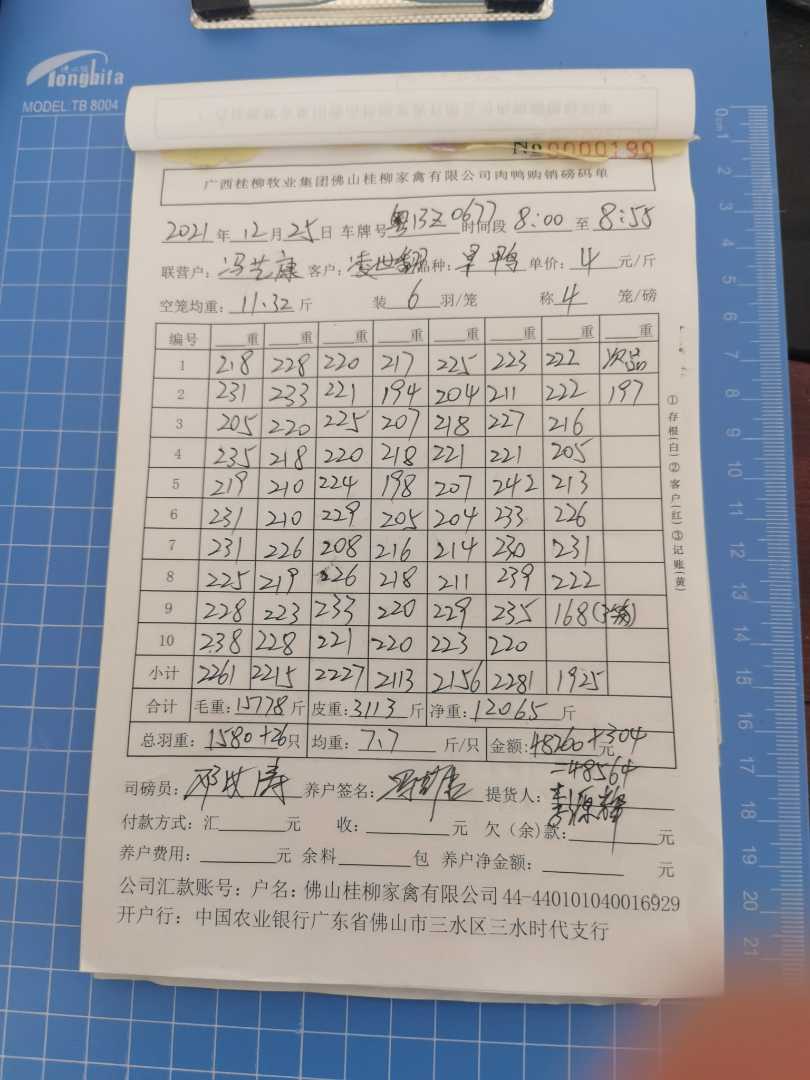 Tongbifa
MODEL: TB 8004
No 0000190
广西桂柳牧业集团佛山桂柳家禽有限公司肉鸭购销磅码单
2021年12月25日 车牌号粤13Z0677 时间段8:00至8:55
联营户:冯艺康 客户:凌世 品种:旱鸭 单价:4元/斤
空笼均重:11.32斤 装6羽/笼 称4笼/磅
编号 重 重 重 重 重 重 重 重
1 218 228 220 217 225 223 222 次品
2 231 233 221 194 204 211 222 197
3 205 220 225 207 218 227 216
4 235 218 220 218 221 221 205
5 219 210 224 198 207 242 213
6 231 210 229 205 204 233 226
7 231 226 208 216 214 230 231
8 225 219 226 218 211 239 222
9 228 223 233 220 229 235 168(3笼)
10 238 228 221 220 223 220
小计 2261 2215 2227 2113 2156 2281 1925
合计 毛重:15778斤 皮重:3113斤 净重:12065斤
总羽重:1580+26只 均重:7.7斤/只 金额:48260+304元
=48564
司磅员:邓 涛 养户签名: 提货人:李源
付款方式:汇 元 收: 元 欠(余)款: 元
养户费用: 元 余料 包 养户净金额: 元
公司汇款账号:户名:佛山桂柳家禽有限公司44-440101040016929
开户行:中国农业银行广东省佛山市三水区三水时代支行
①存根(白)②客户(红)③记账(黄)
0cm 1 2 3 4 5 6 7 8 9 10 11 12 13 14 15 16 17 18 19 20 21